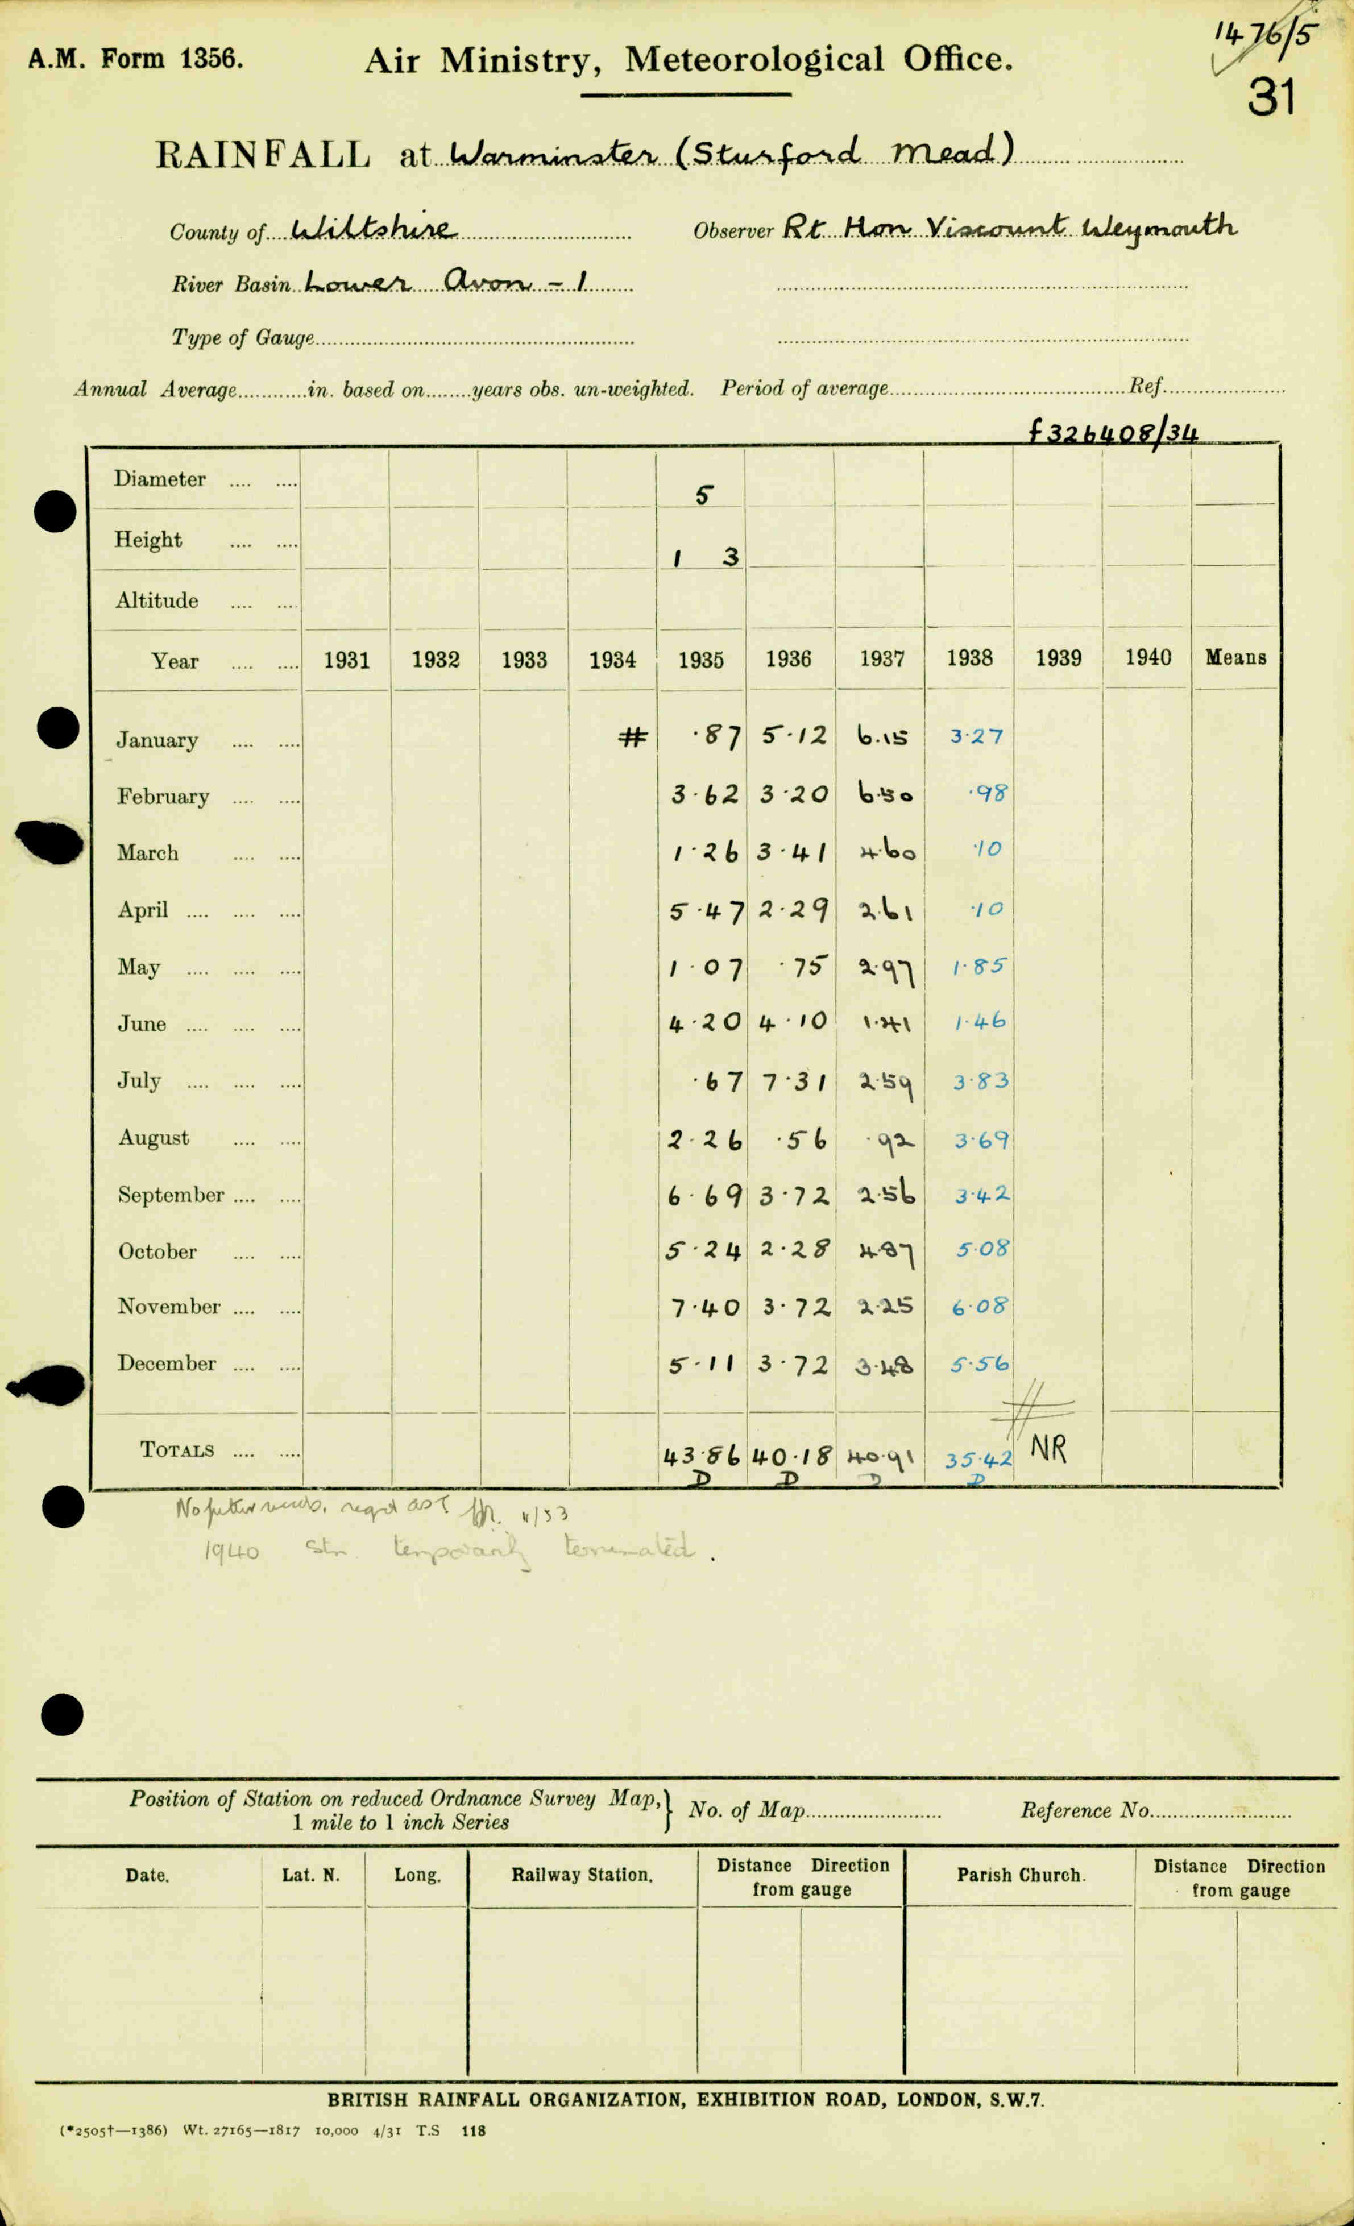 1476/5
A.M. Form 1356. Air Ministry, Meteorological Office.
31
RAINFALL at Warminster (Sturford Mead)
County of Wiltshire Observer Rt Hon Viscount Weymouth
River Basin Lower Avon - 1
Type of Gauge
Annual Average in. based on years obs. un-weighted. Period of average Ref.
f326408/34
Diameter 5
Height 1 3
Altitude
Year 1931 1932 1933 1934 1935 1936 1937 1938 1939 1940 Means
January # ·87 5·12 6.15 3·27
February 3·62 3·20 6·50 ·98
March 1·26 3·41 4·60 ·10
April 5·47 2·29 2·61 ·10
May 1·07 ·75 2·97 1·85
June 4·20 4·10 1·41 1·46
July ·67 7·31 2·59 3·83
August 2·26 ·56 ·92 3·69
September 6·69 3·72 2·56 3·42
October 5·24 2·28 4·87 5·08
November 7·40 3·72 2·25 6·08
December 5·11 3·72 3·48 5·56
#
TOTALS 43·86 40·18 40·91 35·42 NR
D D D D
No
1940 Stn temporarily terminated.
Position of Station on reduced Ordnance Survey Map,} No. of Map Reference No.
1 mile to 1 inch Series
Date. Lat. N. Long. Railway Station. Distance Direction from gauge Parish Church. Distance Direction from gauge
BRITISH RAINFALL ORGANIZATION, EXHIBITION ROAD, LONDON, S.W.7.
(*2505†—1386) Wt. 27165—1817 10,000 4/31 T.S 118